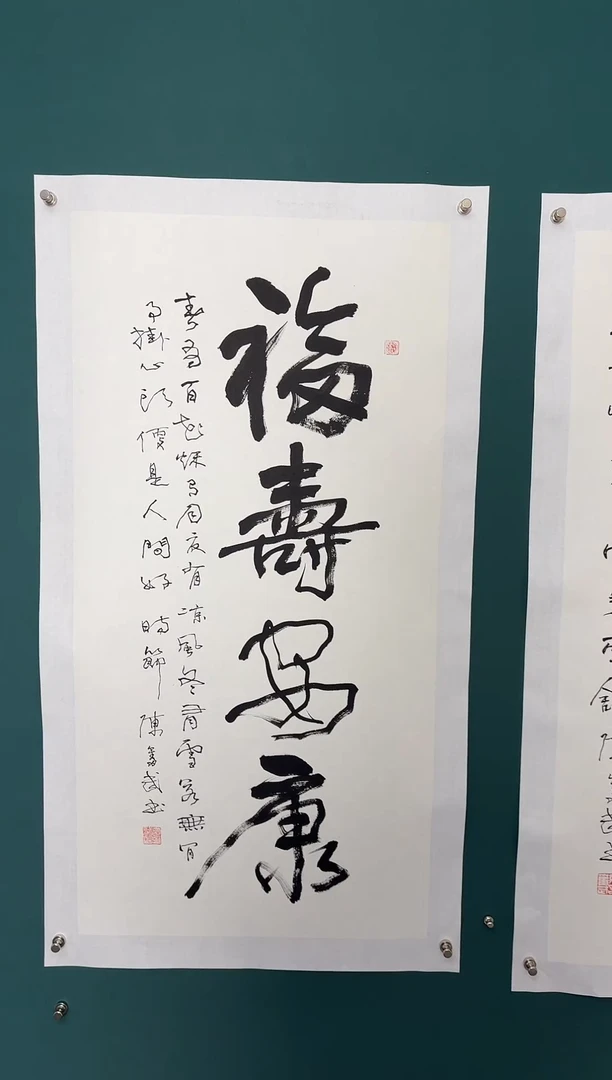 福壽安康
春有百花秋有月夏有涼風冬有雪若無閒
事掛心頭便是人間好時節 陳武書